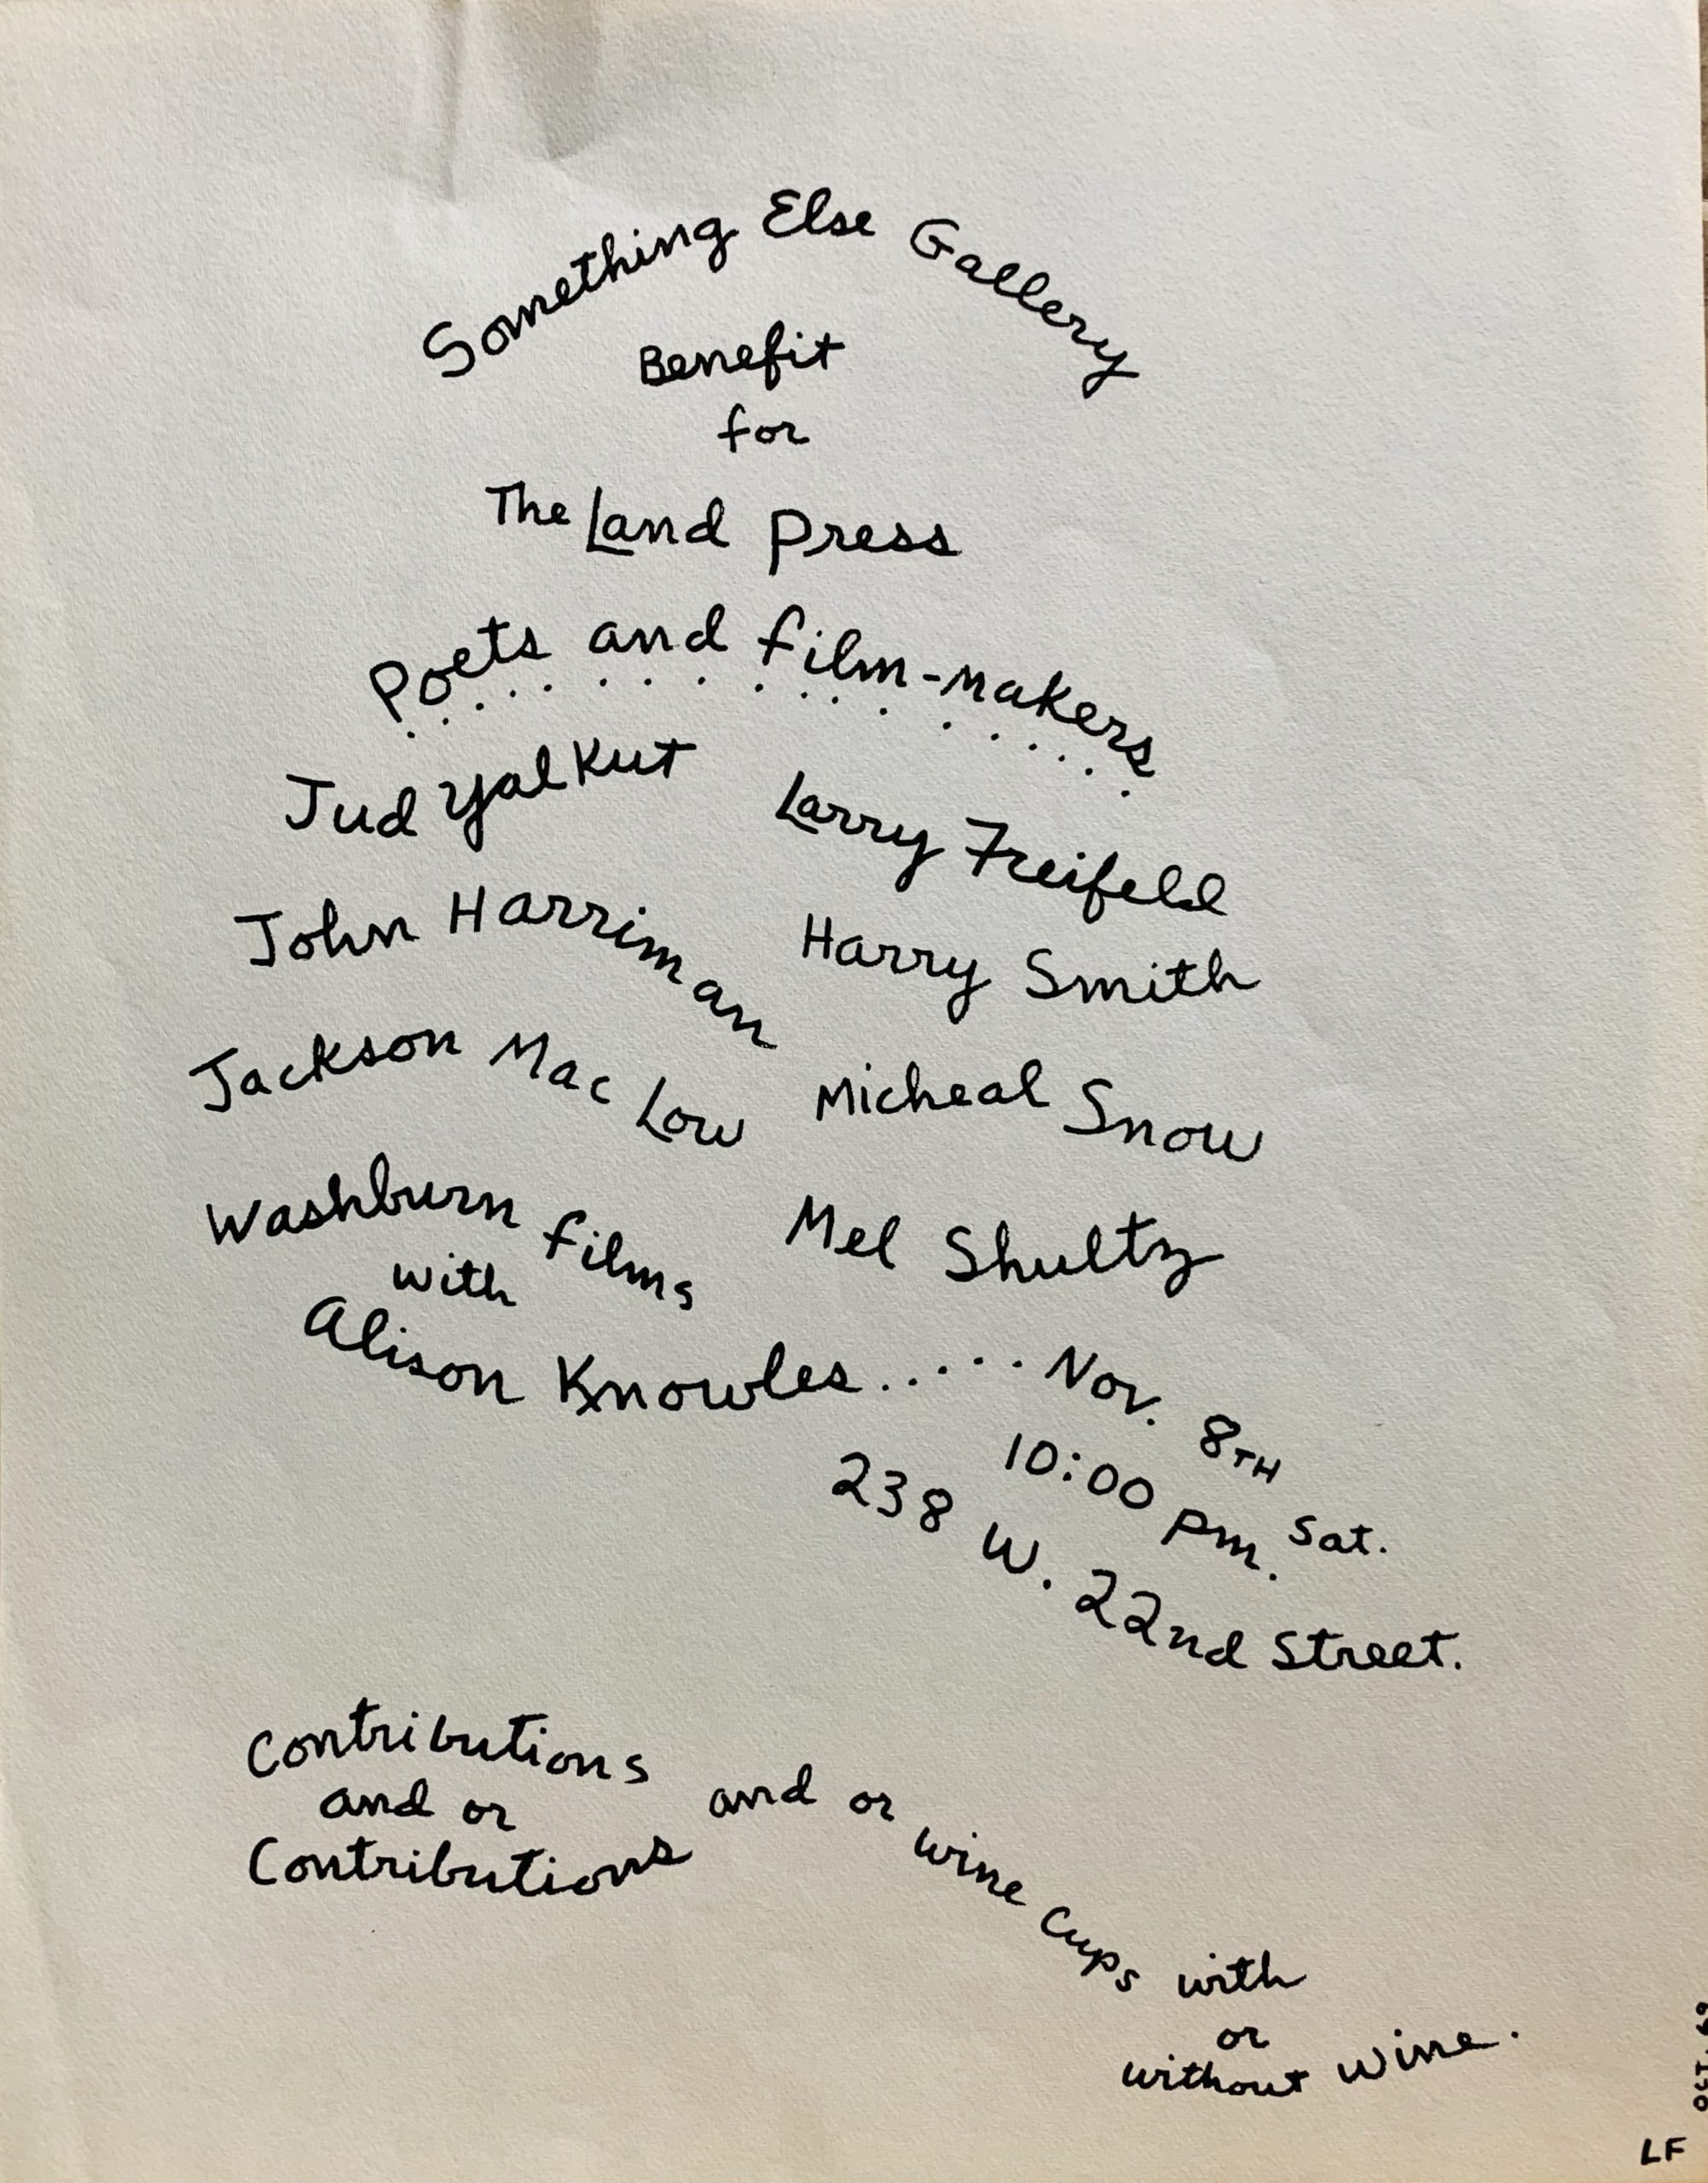 Something Else Gallery
Benefit
for
The Land Press
Poets and film-makers
Jud Yalkut
Larry Freifeld
John Harriman
Harry Smith
Jackson Mac Low
Micheal Snow
Washburn films
Mel Shultz
with
Alison Knowles..... Nov. 8TH
10:00 Pm. Sat.
238 W. 22nd Street.
Contributions
and or
Contributions
and or wine cups with
or
without wine.
LF